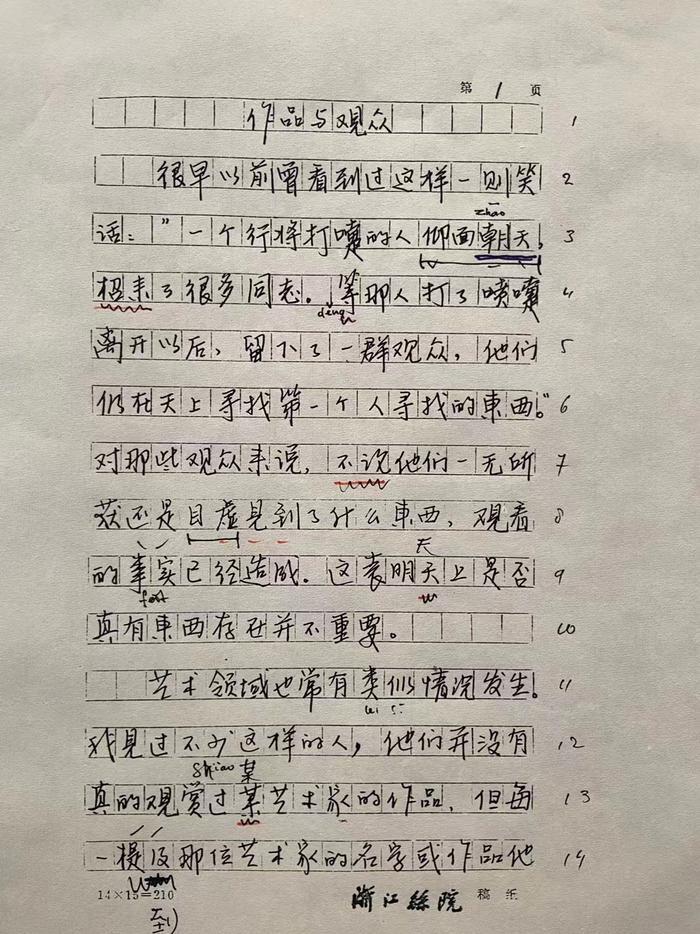 第 1 页
作品与观众 1
很早以前曾看到过这样一则笑 2
zhao
话："一个行将打嚏的人仰面朝天, 3
招来了很多同志。等那人打了喷嚏 4
deng
离开以后，留下了一群观众，他们 5
仍在天上寻找第一个人寻找的東西。" 6
对那些观众来说，不说他们一无所 7
获还是目虚見到了什么東西，观看 8
天
的事实已经造成．这表明天上是否 9
真有東西存在并不重要。 10
艺术领域也常有类似情况发生。 11
lei si
我見过不少这样的人，他们并没有 12
某
真的观赏过某艺术家的作品，但每 13
一提及那位艺术家的名字或作品他 14
14×15=210
浙江丝院 稿纸
到)